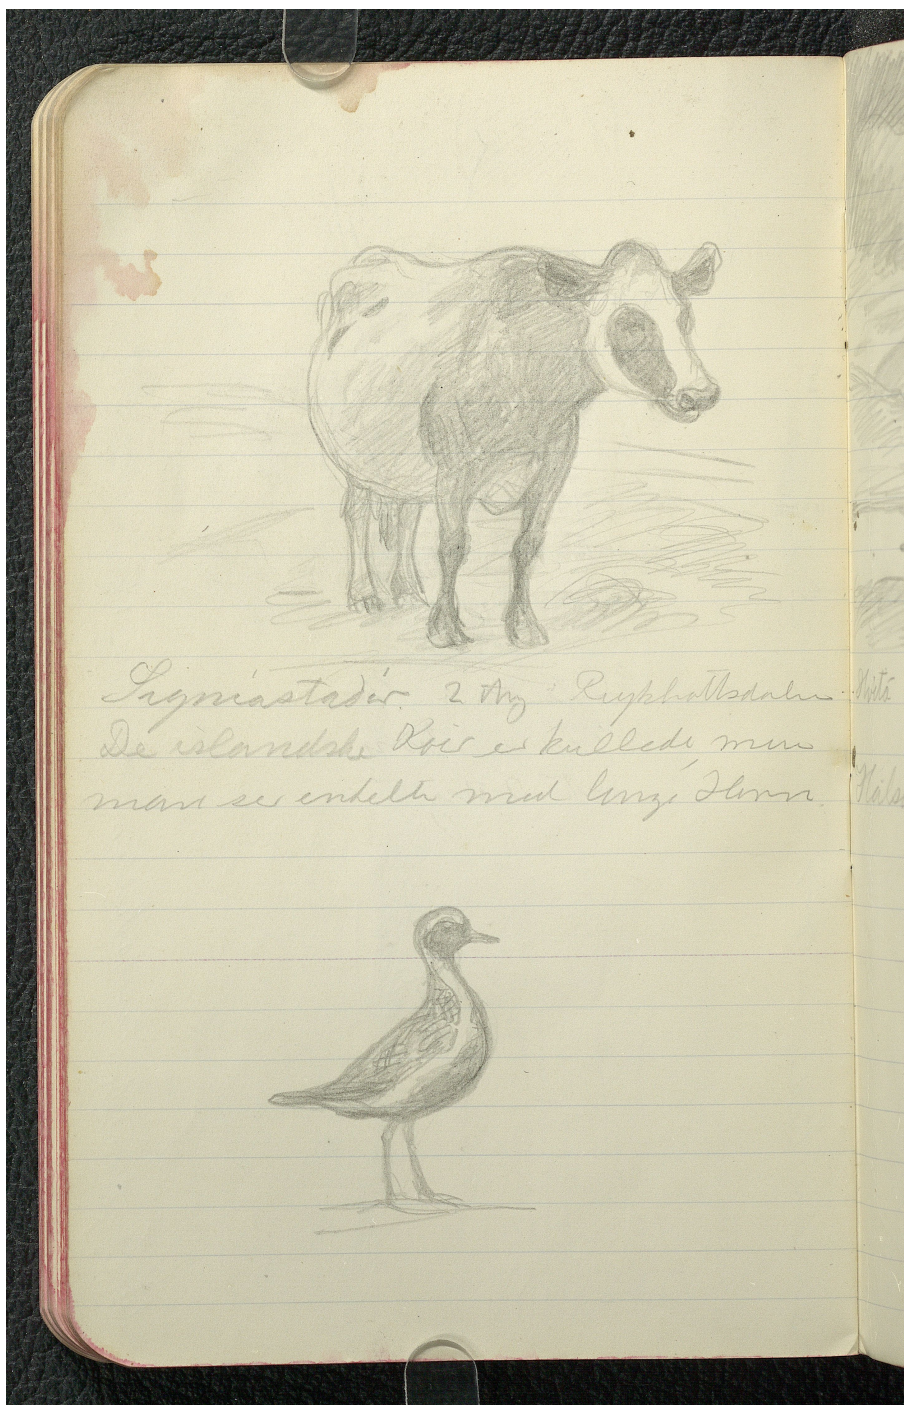 Signiastadir. 2 Aug Reykholtsdalen
De islandske Köer er kullede, men
man ser enkelte med lange Horn.
Hvitá
Háls